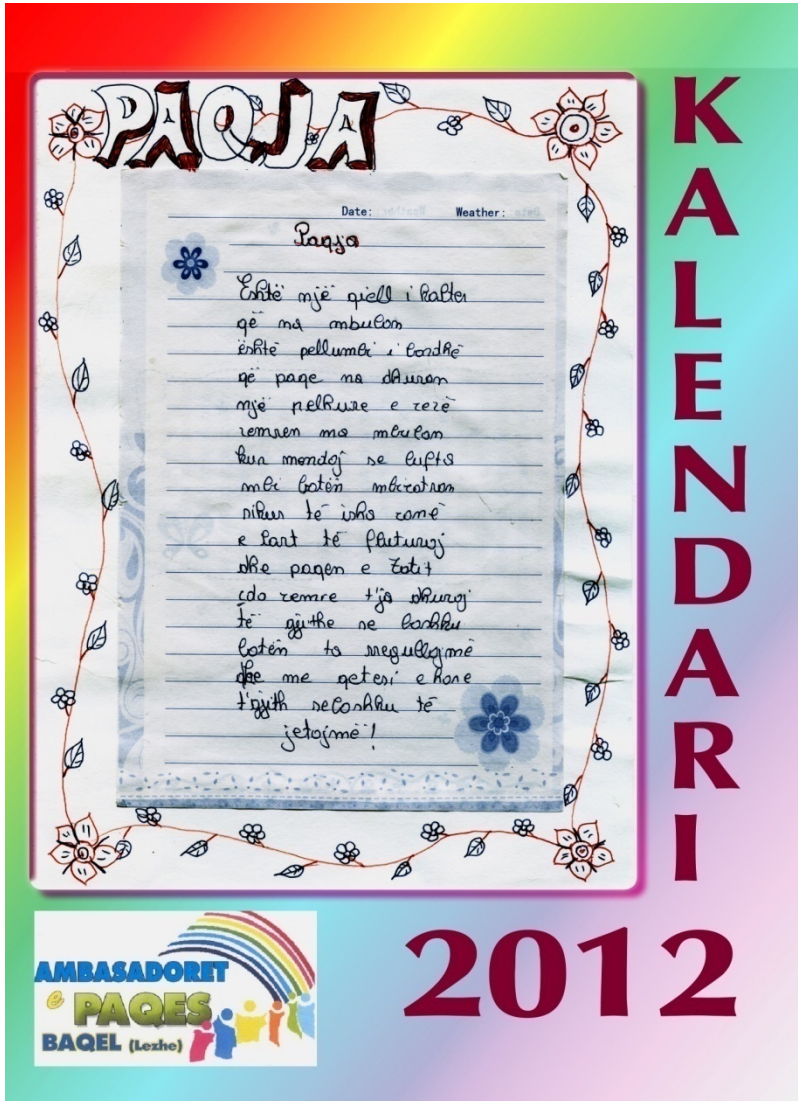 PAQJA
Date: Weather:
Paqja
Është një qiell i kalter
që na mbulon
është pellumbi i bardhë
që paqe na dhuron
një pelhure e zezë
zemren ma mbulon
kur mendoj se lufta
mbi botën mbizotron
sikur të isha zanë
e lart të fluturoj
dhe paqen e Zotit
çdo zemre t'ja dhuroj
të gjithe se bashku
botën ta rregullojmë
dhe me qetesi e hare
t'gjith sebashku të
jetojmë!
KALENDARI
2012
AMBASADORET
e PAQES
BAQEL (Lezhe)